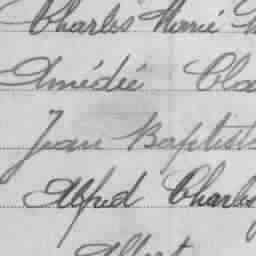 Charles Marie
Amédée Cla
Jean Baptiste
Alfred Charles
Albert